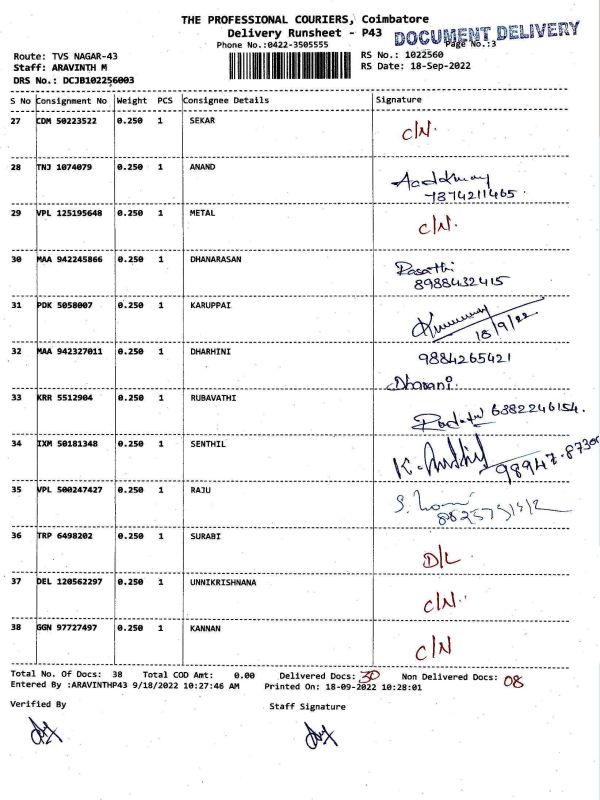 THE PROFESSIONAL COURIERS, Coimbatore
Delivery Runsheet - P43
DOCUMENT DELIVERY
Phone No.:0422-3505555
Page No.:3
Route: TVS NAGAR-43
RS No.: 1022560
Staff: ARAVINTH M
RS Date: 18-Sep-2022
DRS No.: DCJB102256003
S No Consignment No Weight PCS Consignee Details Signature
27 CDM 50223522 0.250 1 SEKAR C/N.
28 TNJ 1074079 0.250 1 ANAND
7374211465.
29 VPL 125195648 0.250 1 METAL C/N.
30 MAA 942245866 0.250 1 DHANARASAN Rasathi
8988432415
31 PDK 5058007 0.250 1 KARUPPAI
18/9/22
32 MAA 942327011 0.250 1 DHARHINI 9884265421
Dharani
33 KRR 5512904 0.250 1 RUBAVATHI 6382246154.
34 IXM 50181348 0.250 1 SENTHIL
98947.8730
35 VPL 500247427 0.250 1 RAJU
36 TRP 6498202 0.250 1 SURABI D/L
37 DEL 120562297 0.250 1 UNNIKRISHNANA C/N.
38 GGN 97727497 0.250 1 KANNAN C/N
Total No. Of Docs: 38 Total COD Amt: 0.00 Delivered Docs: 30 Non Delivered Docs: 08
Entered By :ARAVINTHP43 9/18/2022 10:27:46 AM Printed On: 18-09-2022 10:28:01
Verified By Staff Signature